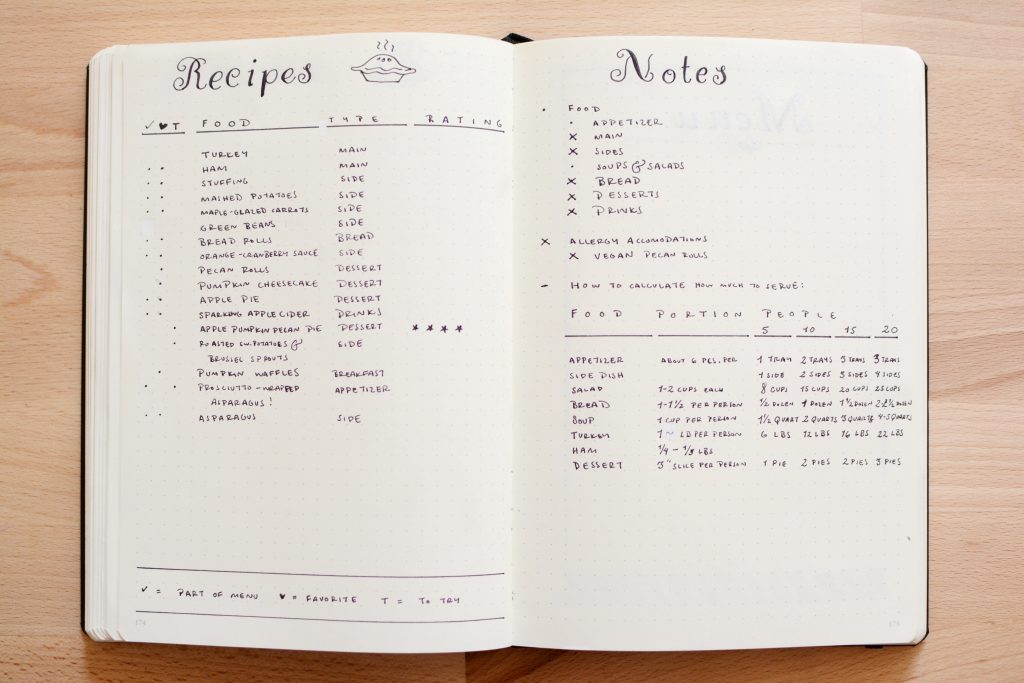 Recipes
✓ ♥ T FOOD TYPE RATING
TURKEY MAIN
• • HAM MAIN
• • STUFFING SIDE
• • MASHED POTATOES SIDE
• • MAPLE-GLAZED CARROTS SIDE
GREEN BEANS SIDE
• • BREAD ROLLS BREAD
• • ORANGE-CRANBERRY SAUCE SIDE
• PECAN ROLLS DESSERT
• PUMPKIN CHEESECAKE DESSERT
• • APPLE PIE DESSERT
• SPARKING APPLE CIDER DRINKS
• APPLE PUMPKIN PECAN PIE DESSERT ★ ★ ★ ★
• ROASTED SW. POTATOES & SIDE
BRUSSEL SPROUTS
• PUMPKIN WAFFLES BREAKFAST
• • PROSCIUTTO-WRAPPED APPETIZER
ASPARAGUS!
• • ASPARAGUS SIDE
✓ = PART OF MENU ♥ = FAVORITE T = TO TRY
174
Notes
• FOOD
• APPETIZER
× MAIN
× SIDES
• SOUPS & SALADS
× BREAD
× DESSERTS
× DRINKS
× ALLERGY ACCOMODATIONS
× VEGAN PECAN ROLLS
– HOW TO CALCULATE HOW MUCH TO SERVE:
FOOD PORTION PEOPLE
5 10 15 20
APPETIZER ABOUT 6 PCS. PER 1 TRAY 2 TRAYS 3 TRAYS 3 TRAYS
SIDE DISH 1 SIDE 2 SIDES 3 SIDES 4 SIDES
SALAD 1-2 CUPS EACH 8 CUPS 15 CUPS 20 CUPS 25 CUPS
BREAD 1-1½ PER PERSON ½ DOZEN 1 DOZEN 1½ DOZEN 2-2½ DOZEN
SOUP 1 CUP PER PERSON 1½ QUART 2 QUARTS 3 QUARTS 4-5 QUARTS
TURKEY 1 LB PER PERSON 6 LBS 12 LBS 16 LBS 22 LBS
HAM LBS
DESSERT 3" SLICE PER PERSON 1 PIE 2 PIES 2 PIES 3 PIES
175